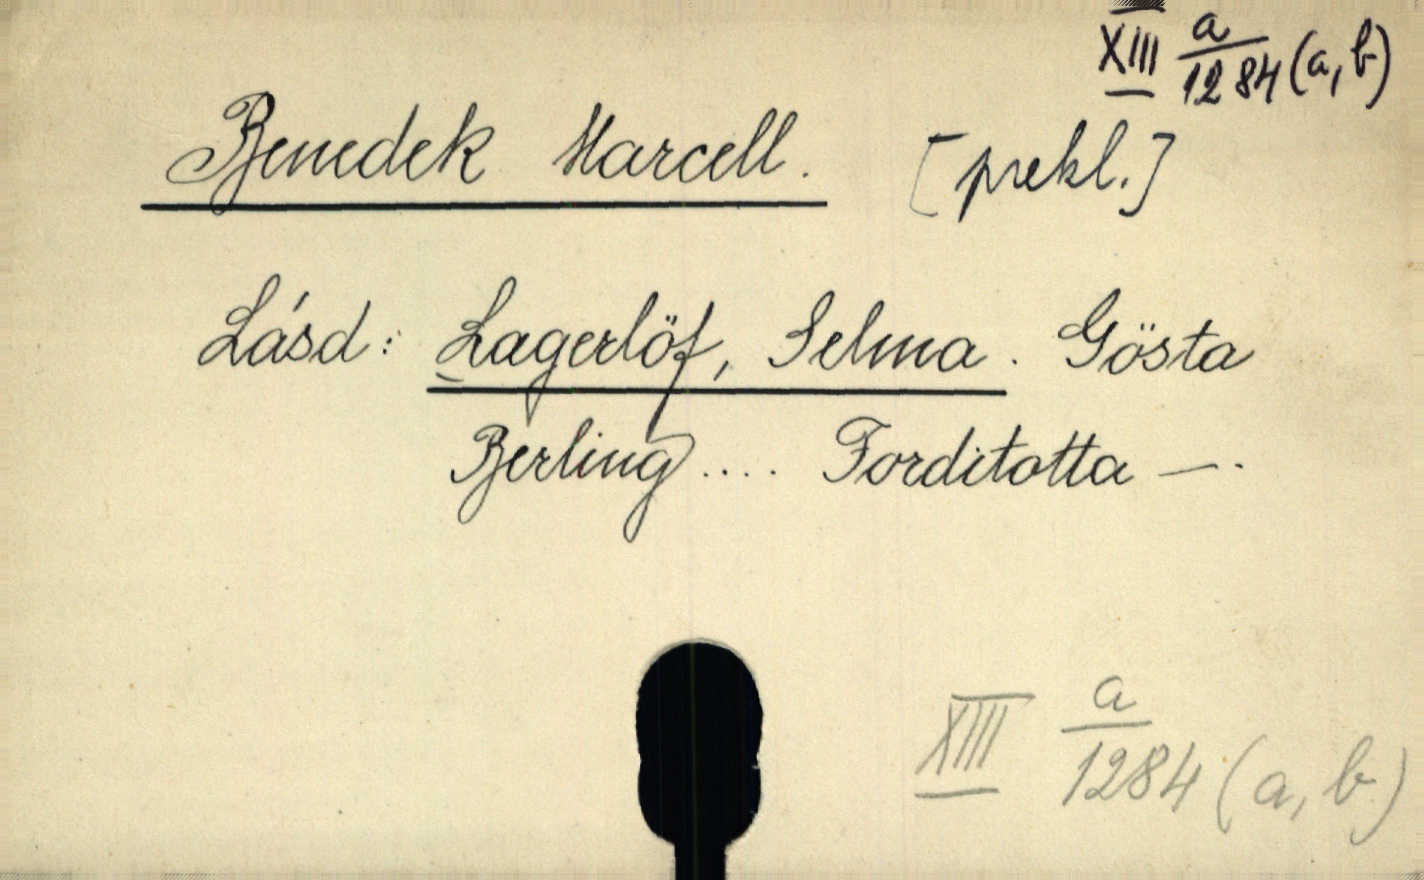 XIII a/1284 (a, b)
Benedek Marcell. [prekl.]
Lásd: Lagerlöf, Selma. Gösta
Berling .... Forditotta —.
XIII a/1284 (a, b)